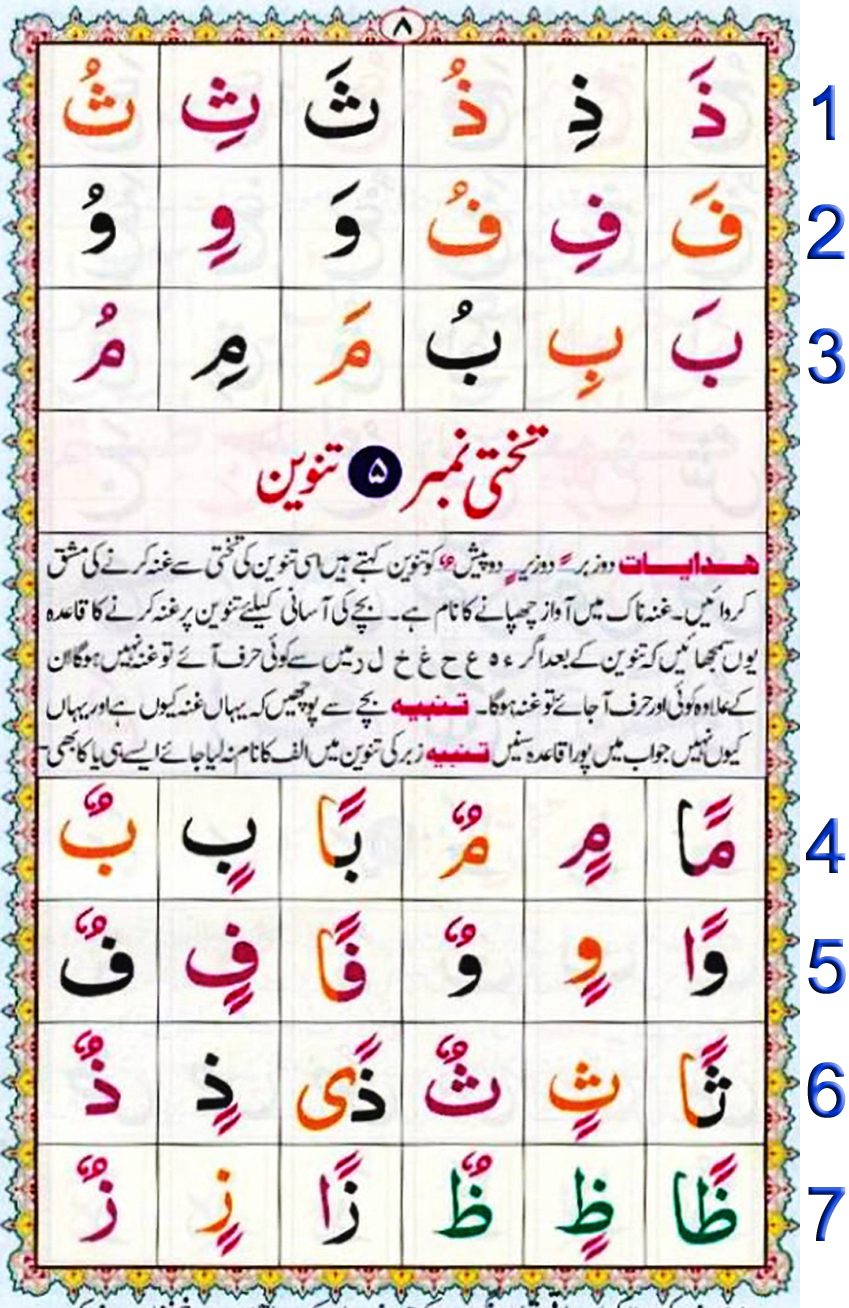 ٨
ذَ ذِ ذُ ثَ ثِ ثُ 1
فَ فِ فُ وَ وِ وُ 2
بَ بِ بُ مَ مِ مُ 3
تختی نمبر ۵ تنوین
ھدایات دو زبر ً دو زیر ٍ دو پیش ٌ کو تنوین کہتے ہیں اسی تنوین کی تختی سے غنہ کرنے کی مشق
کروائیں۔ غنہ ناک میں آواز چھپانے کا نام ہے۔ بچے کی آسانی کیلئے تنوین پر غنہ کرنے کا قاعدہ
یوں سمجھائیں کہ تنوین کے بعد اگر ء ہ ع ح غ خ ل ر میں سے کوئی حرف آئے تو غنہ نہیں ہوگا ان
کے علاوہ کوئی اور حرف آ جائے تو غنہ ہوگا۔ تنبیہ بچے سے پوچھیں کہ یہاں غنہ کیوں ہے اور یہاں
کیوں نہیں جواب میں پورا قاعدہ سنیں تنبیہ زبر کی تنوین میں الف کا نام نہ لیا جائے ایسے ہی یا کا بھی
مًا مٍ مٌ بًا بٍ بٌ 4
وًا وٍ وٌ فًا فٍ فٌ 5
ثًا ثٍ ثٌ ذًی ذٍ ذٌ 6
ظًا ظٍ ظٌ زًا زٍ زٌ 7